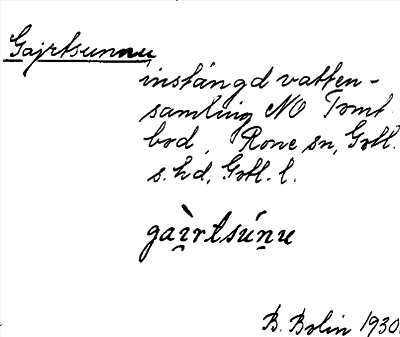 Gajrtsunnu
instängd vatten-
samling NO Tomt-
bod, Rone sn, Gotl.
s. hd, Gotl. l.
gaìrtsúnu
B. Bolin 1930.